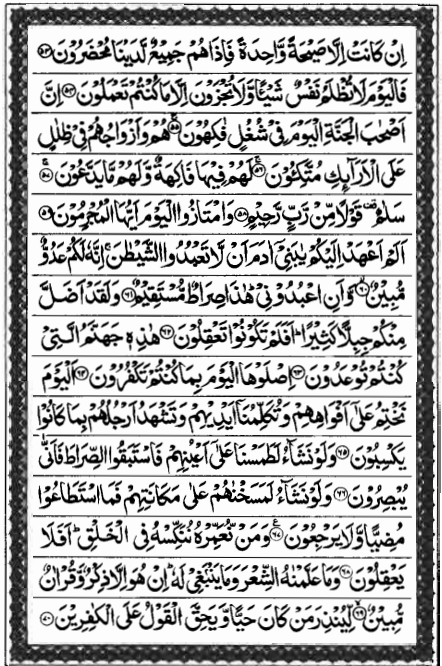 اِنْ كَانَتْ اِلَّا صَيْحَةً وَّاحِدَةً فَاِذَا هُمْ جَمِيْعٌ لَّدَيْنَا مُحْضَرُوْنَ ﴿۵۳﴾
فَالْيَوْمَ لَا تُظْلَمُ نَفْسٌ شَيْـًٔا وَّلَا تُجْزَوْنَ اِلَّا مَا كُنْتُمْ تَعْمَلُوْنَ ﴿۵۴﴾ اِنَّ
اَصْحٰبَ الْجَنَّةِ الْيَوْمَ فِيْ شُغُلٍ فٰكِهُوْنَ ﴿۵۵﴾ هُمْ وَاَزْوَاجُهُمْ فِيْ ظِلٰلٍ
عَلَى الْاَرَآىِٕكِ مُتَّكِـُٔوْنَ ﴿۵۶﴾ لَهُمْ فِيْهَا فَاكِهَةٌ وَّلَهُمْ مَّا يَدَّعُوْنَ ﴿۵۷﴾
سَلٰمٌ قَوْلًا مِّنْ رَّبٍّ رَّحِيْمٍ ﴿۵۸﴾ وَامْتَازُوا الْيَوْمَ اَيُّهَا الْمُجْرِمُوْنَ ﴿۵۹﴾
اَلَمْ اَعْهَدْ اِلَيْكُمْ يٰبَنِيْٓ اٰدَمَ اَنْ لَّا تَعْبُدُوا الشَّيْطٰنَ ۚ اِنَّهٗ لَكُمْ عَدُوٌّ
مُّبِيْنٌ ﴿۶۰﴾ وَّاَنِ اعْبُدُوْنِيْ هٰذَا صِرَاطٌ مُّسْتَقِيْمٌ ﴿۶۱﴾ وَلَقَدْ اَضَلَّ
مِنْكُمْ جِبِلًّا كَثِيْرًا ؕ اَفَلَمْ تَكُوْنُوْا تَعْقِلُوْنَ ﴿۶۲﴾ هٰذِهٖ جَهَنَّمُ الَّتِيْ
كُنْتُمْ تُوْعَدُوْنَ ﴿۶۳﴾ اِصْلَوْهَا الْيَوْمَ بِمَا كُنْتُمْ تَكْفُرُوْنَ ﴿۶۴﴾ اَلْيَوْمَ
نَخْتِمُ عَلٰٓى اَفْوَاهِهِمْ وَتُكَلِّمُنَآ اَيْدِيْهِمْ وَتَشْهَدُ اَرْجُلُهُمْ بِمَا كَانُوْا
يَكْسِبُوْنَ ﴿۶۵﴾ وَلَوْ نَشَآءُ لَطَمَسْنَا عَلٰٓى اَعْيُنِهِمْ فَاسْتَبَقُوا الصِّرَاطَ فَاَنّٰى
يُبْصِرُوْنَ ﴿۶۶﴾ وَلَوْ نَشَآءُ لَمَسَخْنٰهُمْ عَلٰى مَكَانَتِهِمْ فَمَا اسْتَطَاعُوْا
مُضِيًّا وَّلَا يَرْجِعُوْنَ ﴿۶۷﴾ وَمَنْ نُّعَمِّرْهُ نُنَكِّسْهُ فِي الْخَلْقِ ؕ اَفَلَا
يَعْقِلُوْنَ ﴿۶۸﴾ وَمَا عَلَّمْنٰهُ الشِّعْرَ وَمَا يَنْۢبَغِيْ لَهٗ ؕ اِنْ هُوَ اِلَّا ذِكْرٌ وَّقُرْاٰنٌ
مُّبِيْنٌ ﴿۶۹﴾ لِّيُنْذِرَ مَنْ كَانَ حَيًّا وَّيَحِقَّ الْقَوْلُ عَلَى الْكٰفِرِيْنَ ﴿۷۰﴾